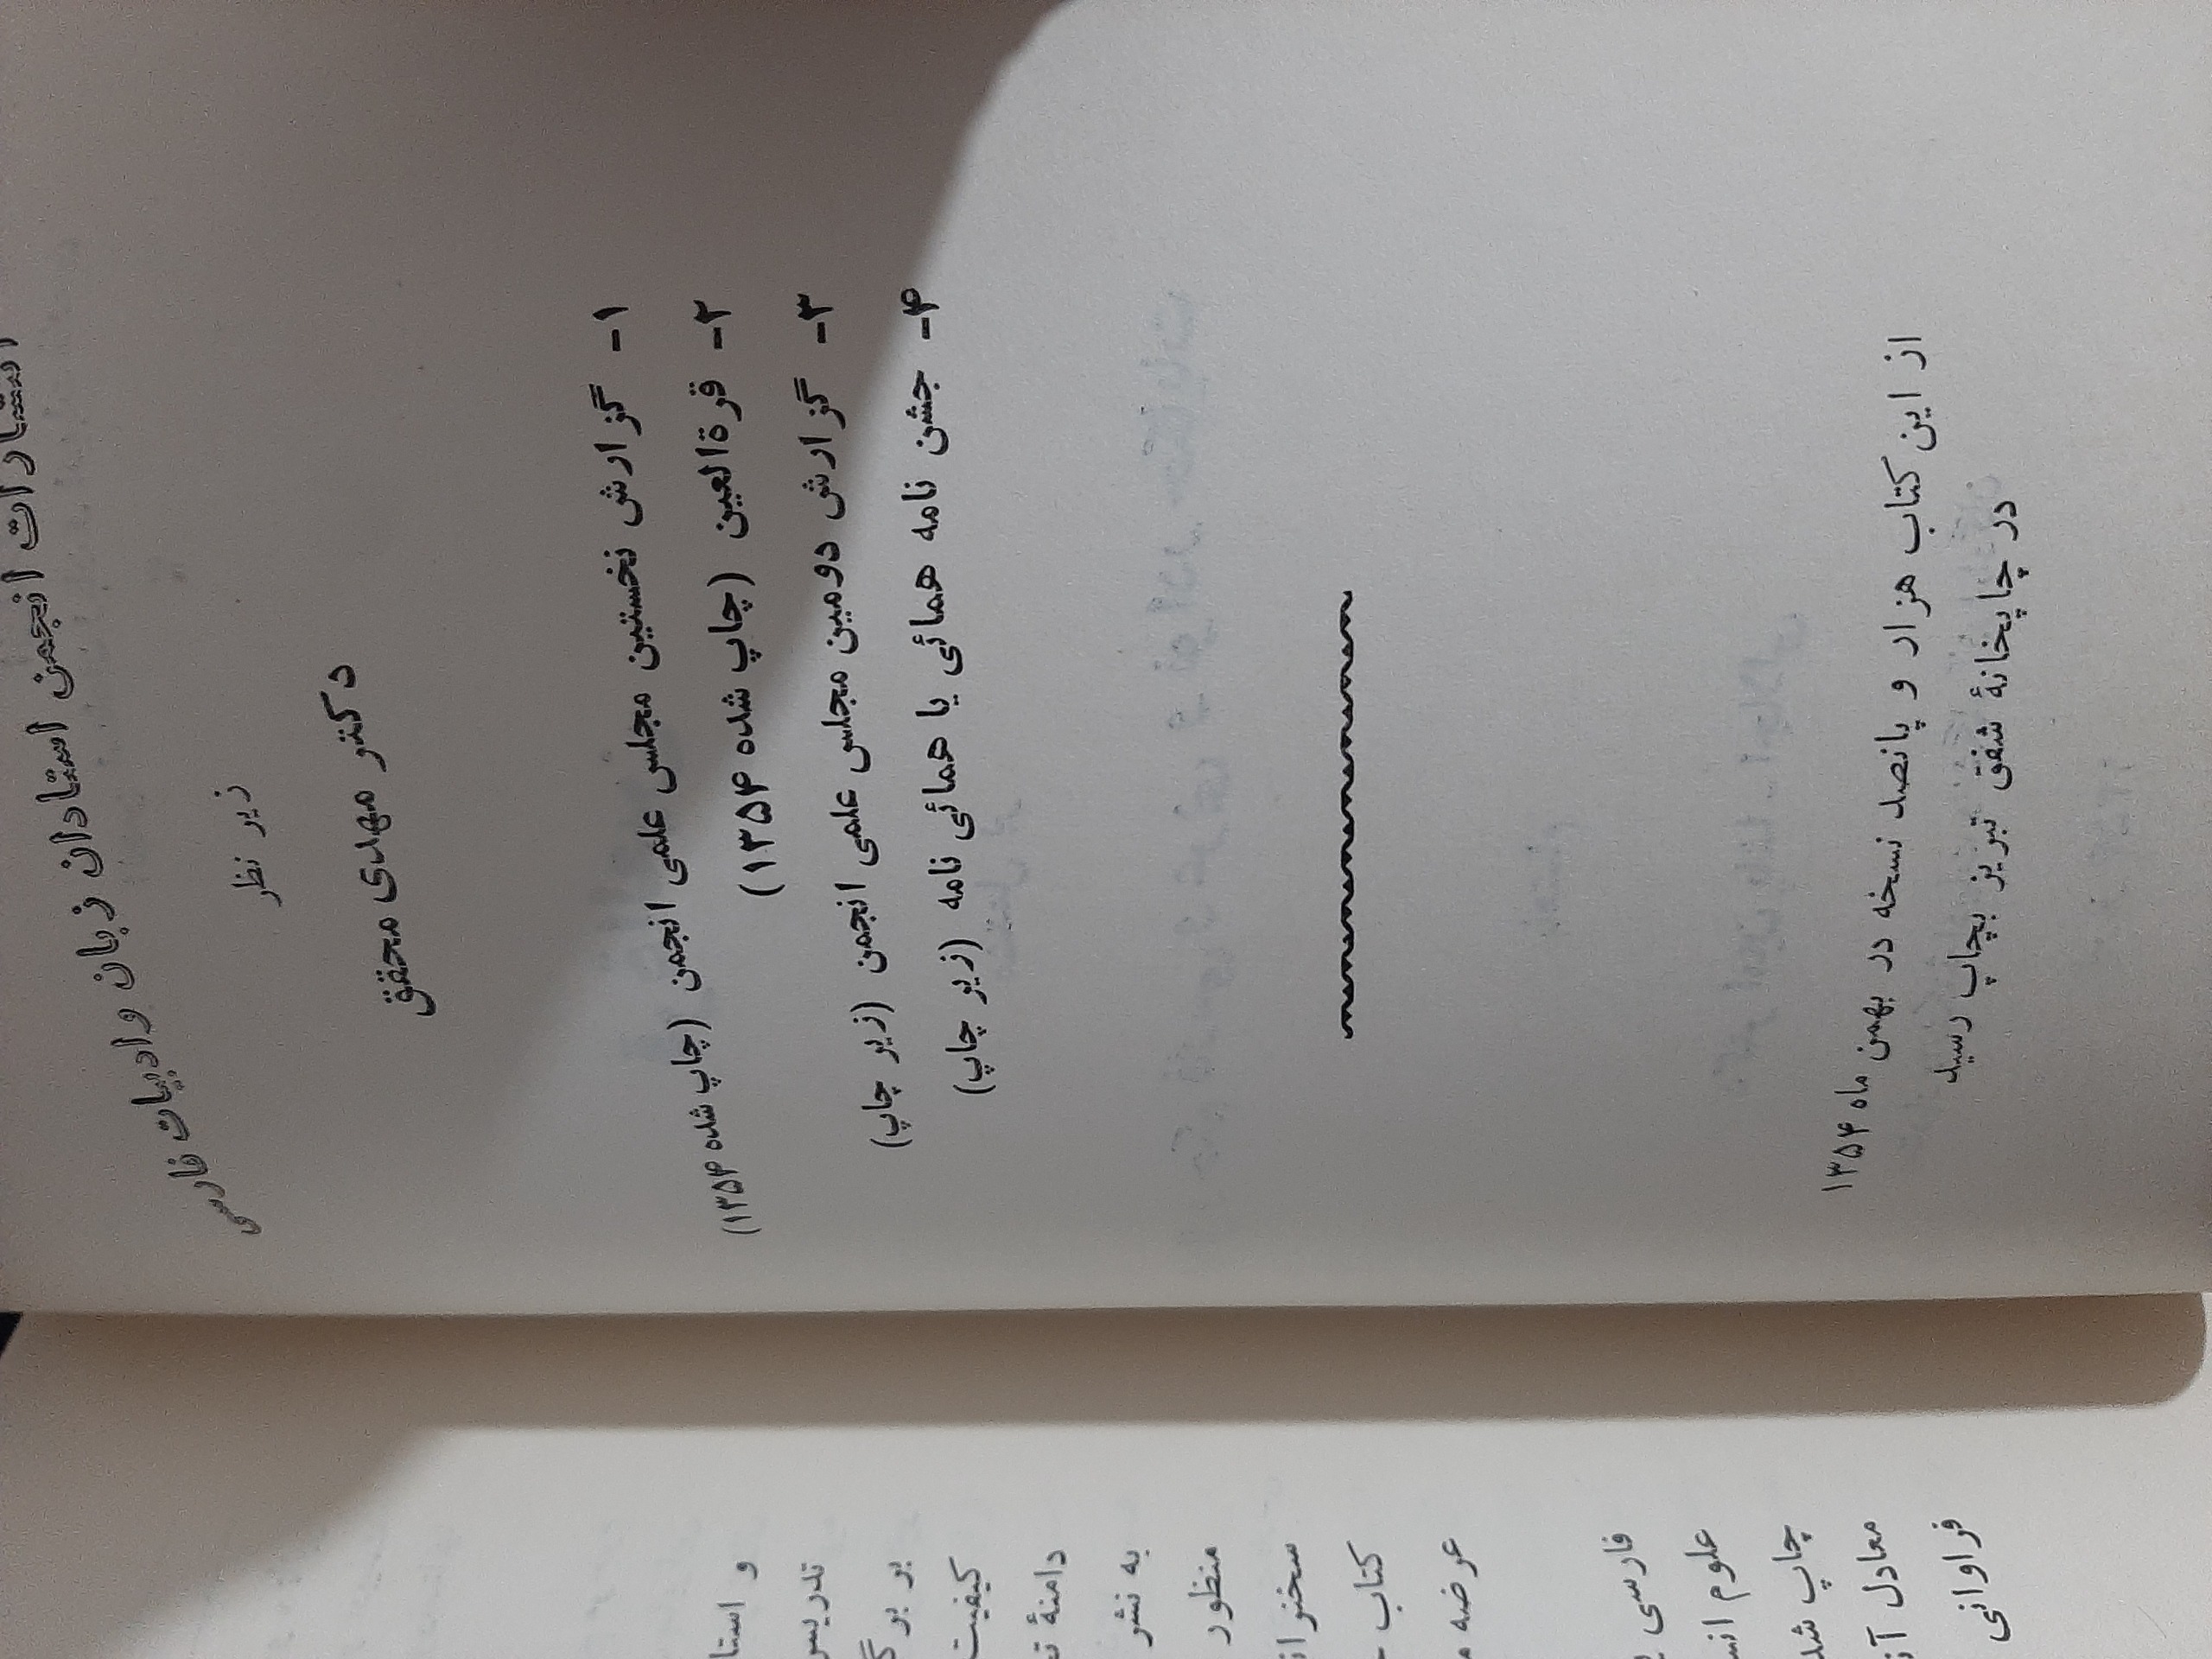 انتشارات انجمن استادان زبان و ادبیات فارسی
زیر نظر
دکتر مهدی محقق
۱- گزارش نخستین مجلس علمی انجمن (چاپ شده ۱۳۵۴)
۲- قرةالعین (چاپ شده ۱۳۵۴)
۳- گزارش دومین مجلس علمی انجمن (زیر چاپ)
۴- جشن نامه همائی یا همائی نامه (زیر چاپ)
از این کتاب هزار و پانصد نسخه در بهمن ماه ۱۳۵۴
در چاپخانۀ شفق تبریز بچاپ رسید
و
تدریس
بر
کیفیت
دامنۀ
به نشر
منظور
کتاب
عرضه
فارسی
علوم
چاپ
معادل
فراوانی